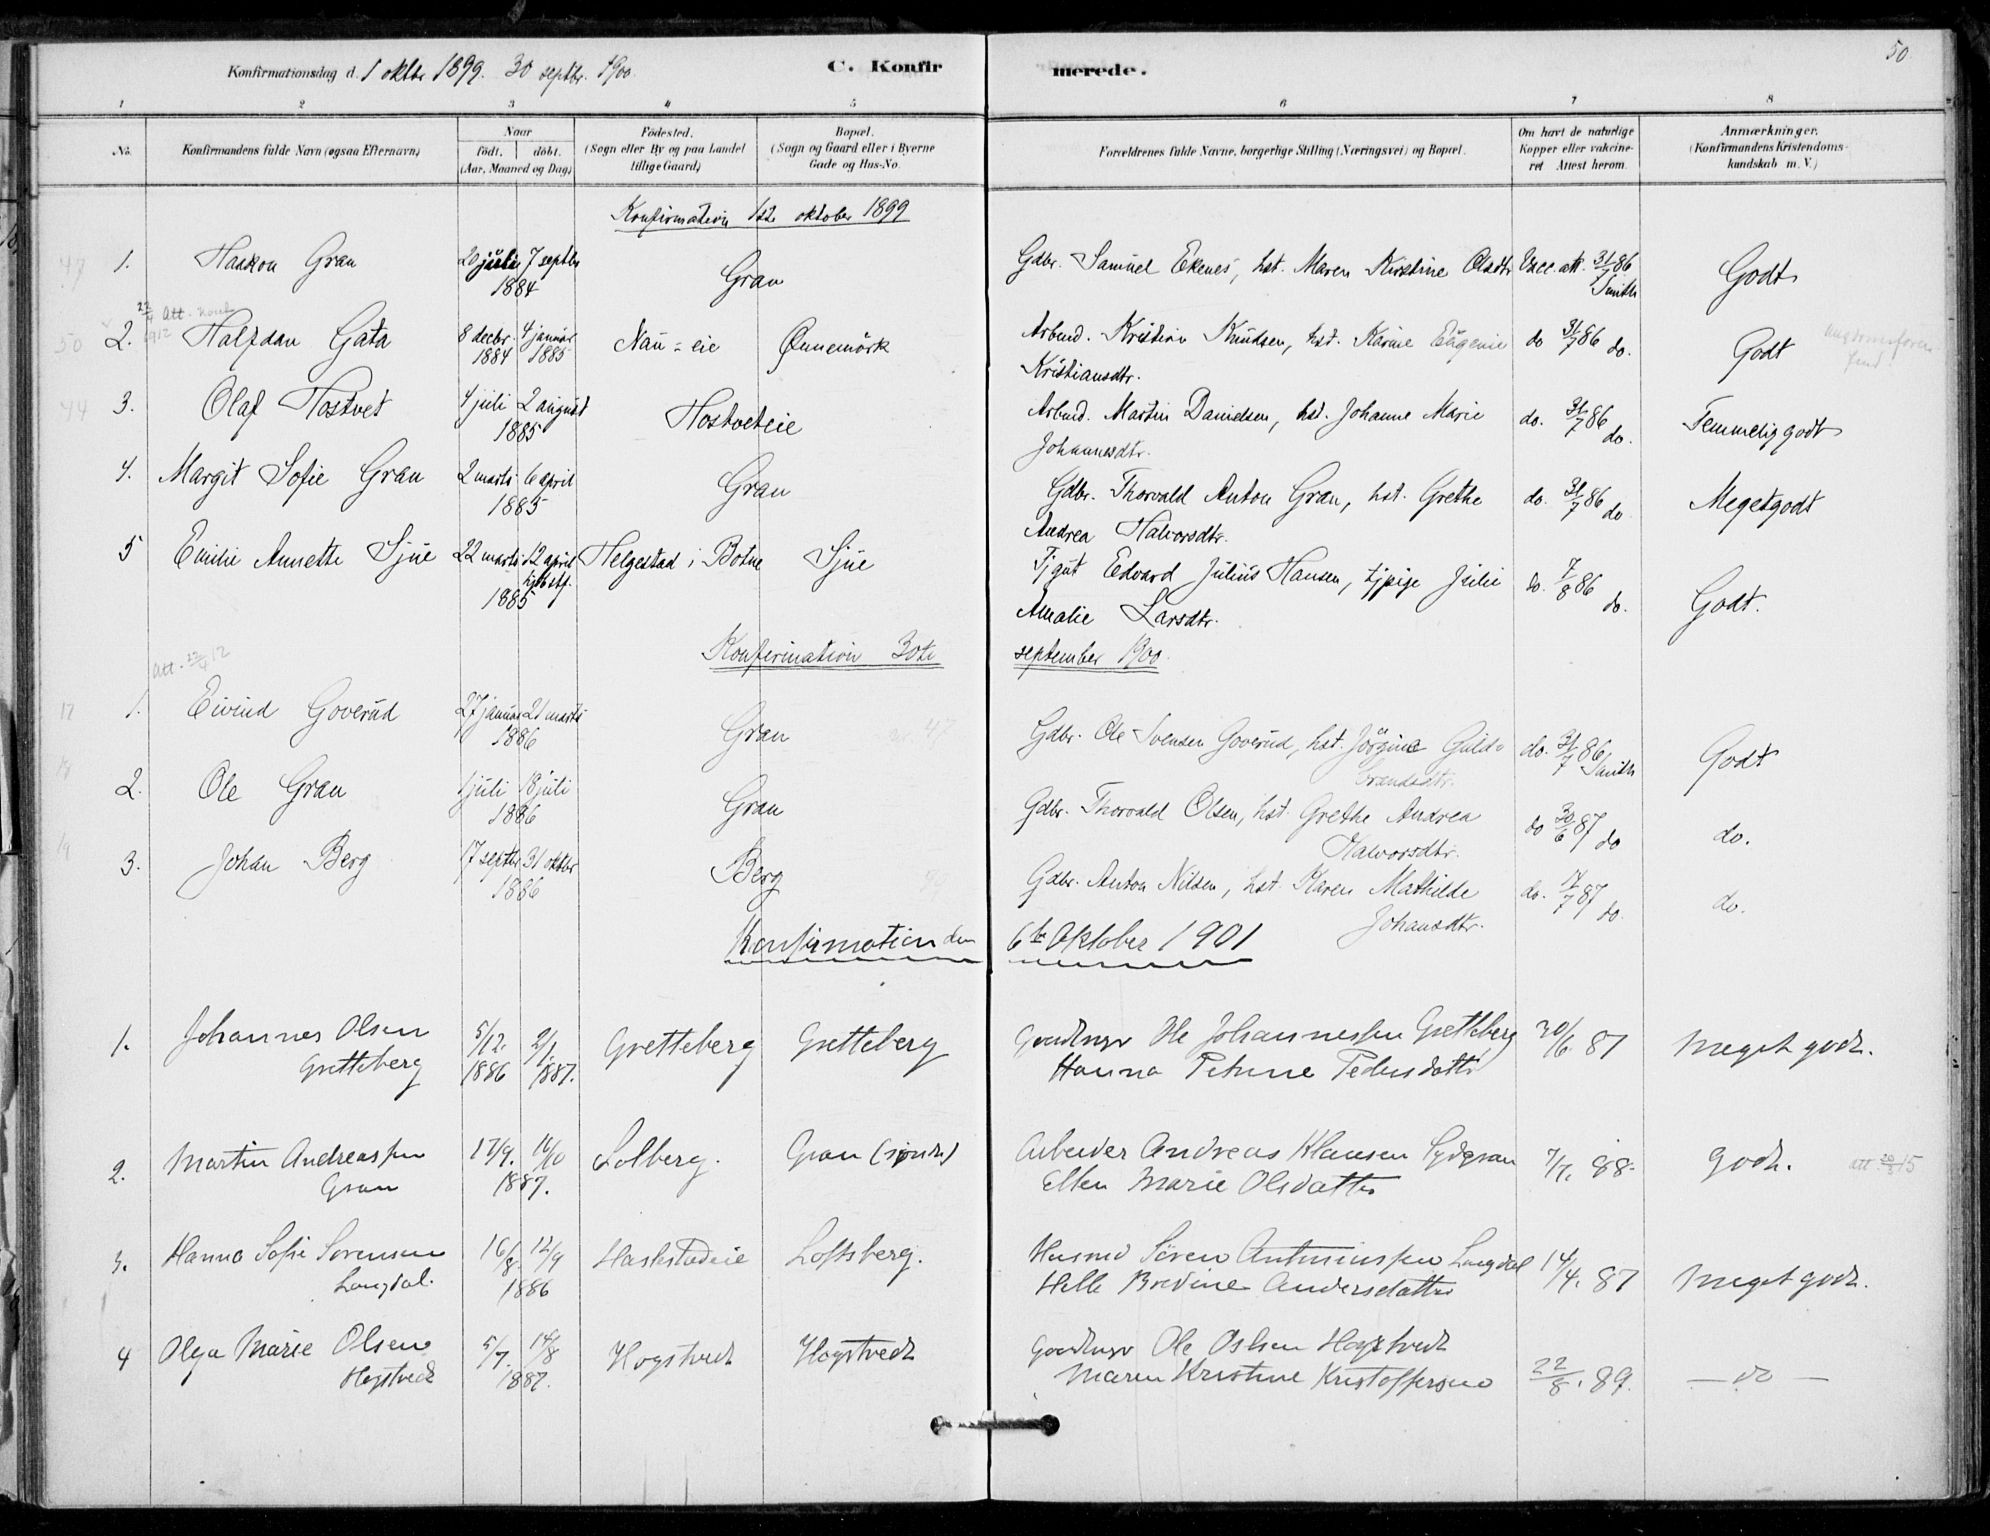 50
Konfirmationsdag d. 1 oktbr 1899. 30 septbr. 1900
C. Konfirmerede.
1 2 3 4 5 6 7 8
No.
Konfirmandens fulde Navn (ogsaa Efternavn)
Naar
födt. döbt.
(Aar, Maaned og Dag)
Födested.
(Sogn eller By og paa Landet
tillige Gaard)
Bopæl.
(Sogn og Gaard eller i Byerne
Gade og Hus-No.
Forældrenes fulde Navne, borgerlige Stilling (Næringsvei) og Bopæl.
Om havt de naturlige
Kopper eller vakcine-
ret Attest herom.
Anmærkninger.
(Konfirmandens Kristendoms-
kundskab m. V.)
Konfirmation 1ste oktober 1899
47 1. Haakon Gran 20 juli 7 septbr 1884 Gran Gdbr. Samuel Ekenes, hst. Maren Kirstine Olsdtr Vacc. att. 31/7 86 Smith Godt
22/4 Att. 1912
50 2. Halfdan Gata 8 decbr. 1884 4 januar 1885 Nau-eie Ønnemörk Arbmd. Kristian Knudsen, hst. Karine Eugenie do 31/7 86 do. Godt
Kristiansdtr.
44 3. Olaf Hostvet 4 juli 2 august 1885 Hostveteie Arbmd. Martin Danielsen, hst. Johanne Marie do. 31/7 86 do. Temmelig godt
Johannesdtr.
4. Margit Sofie Gran 2 marts 6 april 1885 Gran Gdbr. Thorvald Anton Gran, hst. Grethe do. 31/7 86 do Megetgodt
Andrea Halvorsdtr.
5 Emilie Annette Sjue 22 marts 12 april 1885 Helgestad i Botne Sjue Tjgut Edvard Julius Hansen, tjpige Julie do. 7/8 86 do. Godt.
Amalie Larsdtr.
Konfirmation 30te september 1900.
Att. 22/4 12
17 1. Eivind Goverud 27 januar 21 marts 1886 Gran Gdbr. Ole Svensen Goverud, hst. Jörgine Guld- do. 31/7 86 Smith Godt
brandsdtr.
18 2. Ole Gran 1 juli 18 juli 1886 Gran Gdbr. Thorvald Olsen, hst. Grethe Andrea do 30/6 87 do do.
Halvorsdtr.
19 3. Johan Berg 17 septbr 31 oktbr 1886 Berg Gdbr. Anton Nilsen, hst. Karen Mathilde do. 17/7 87 do. do.
Johansdtr.
Konfirmation den 6te Oktober 1901
1. Johannes Olsen 5/12. 1886 2/1 1887. Gretteberg Gretteberg Gaardbruger Ole Johannessen Gretteberg 30/6 87 Meget godt.
Gretteberg Hanna Petrine Pedersdatter
2. Martin Andreassen 17/9. 16/10 1887. Solberg. Gran (söndre) Arbeider Andreas Klausen Sydgran 7/7. 88. Godt. att. 20/2 15
Gran Ellen Marie Olsdatter
3. Hanna Sofie Sorensen 16/8. 12/9 1886 Haslestadeie Loftsberg. Husmd Sören Antoniussen Langdal 14/4. 87 Meget godt.
Langdal. Helle Bredine Andersdatter
4 Olga Marie Olsen 5/7. 14/8 1887. Hogstvedt Hogstvedt Gaardbruger Ole Olsen Hogstvedt
Hogstvedt Maren Kristine Kristoffersen 22/8. 89. — do —